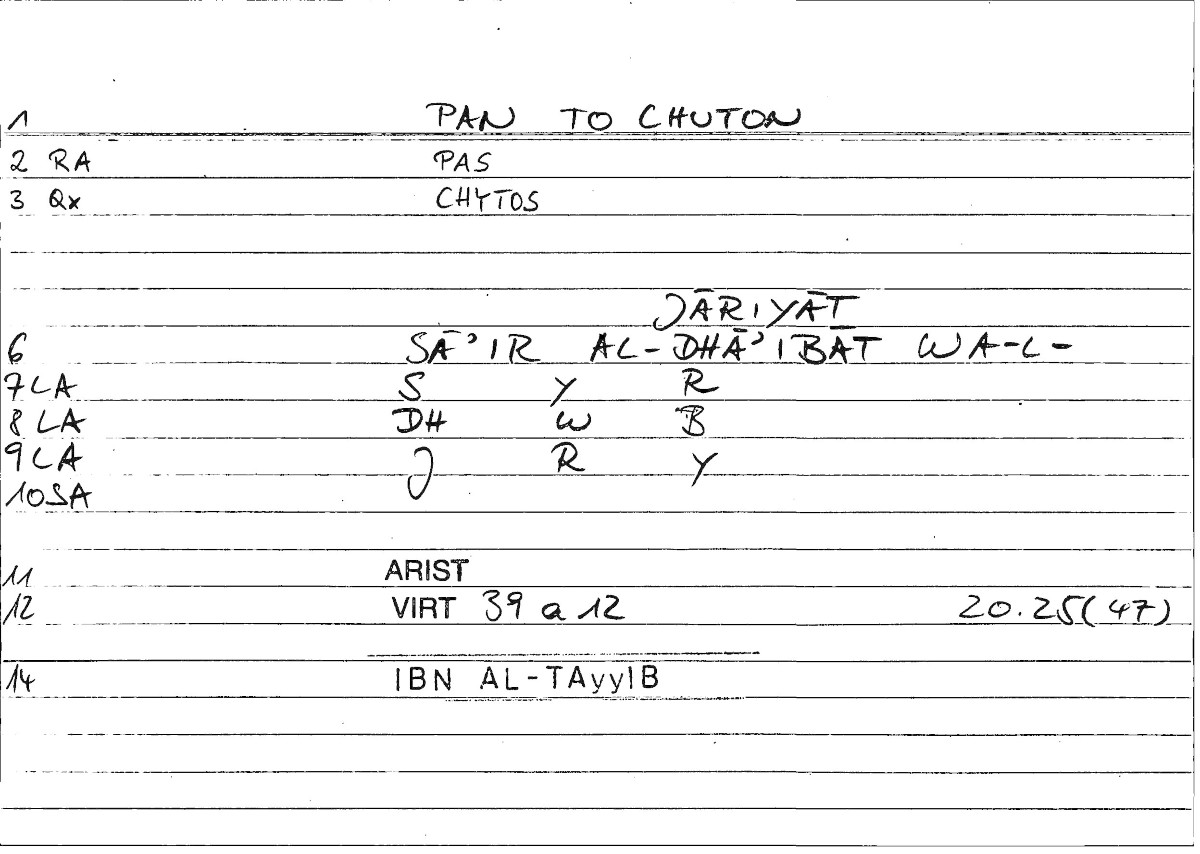 1 PAN TO CHUTON
2 RA PAS
3 Qx CHYTOS
JĀRIYĀT
6 SĀʾIR AL-DHĀʾIBĀT WA-L-
7 LA S Y R
8 LA DH W B
9 LA J R Y
10 SA
11 ARIST
12 VIRT 39 a 12 20.25(47)
14 IBN AL-TAyyIB